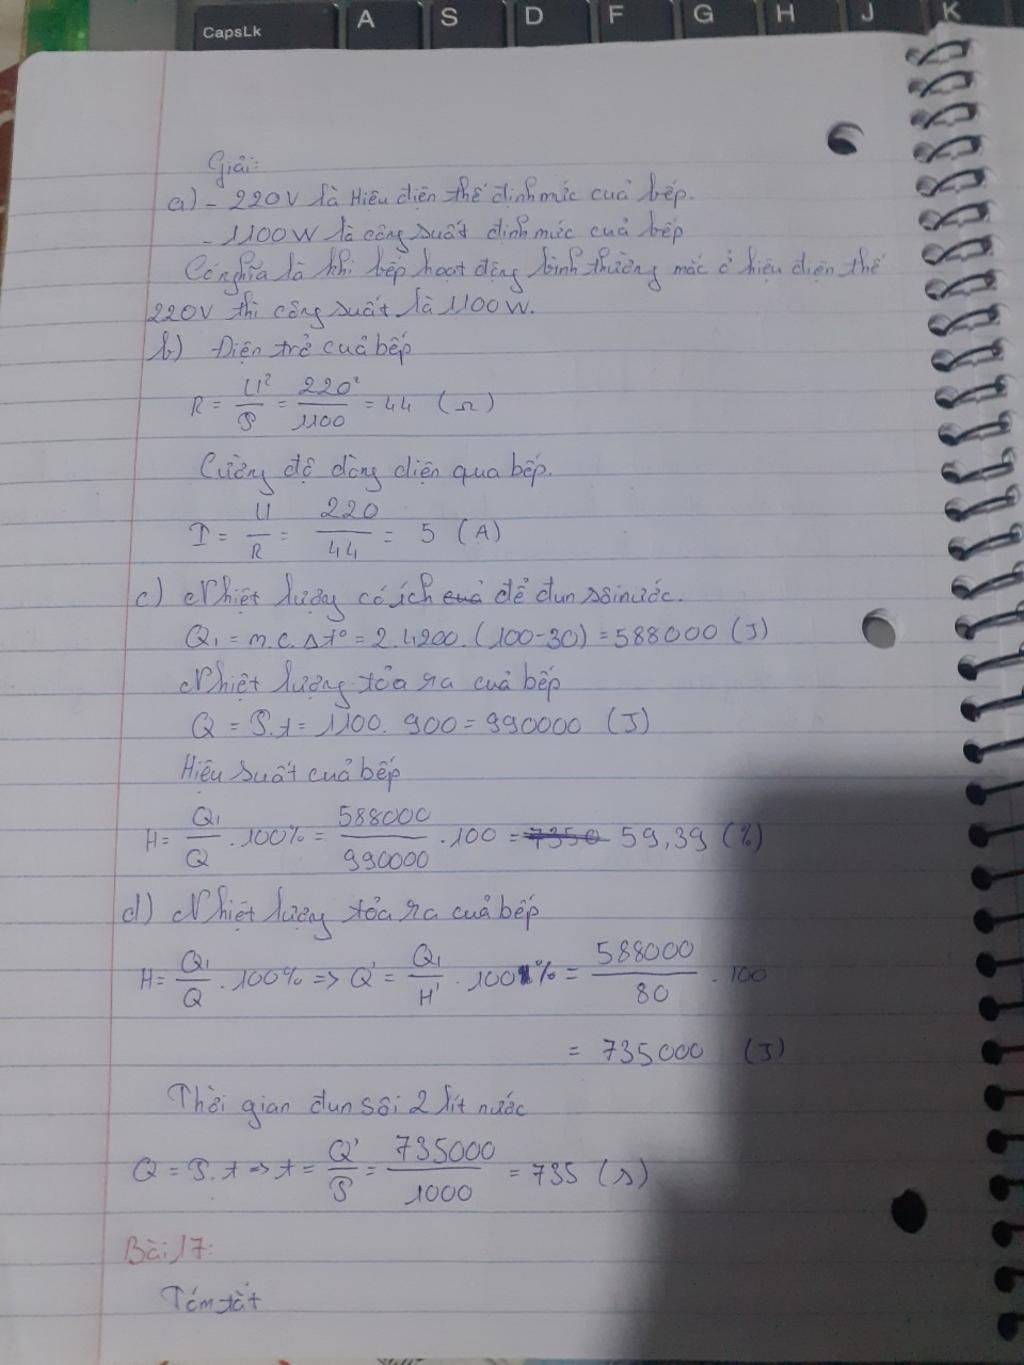 CapsLk A S D F G H J K
Giải:
a) - 220V là Hiệu điện thế định mức cuả bếp.
- 1100W là công suất định mức cuả bếp
Có nghĩa là khi bếp hoạt động bình thường mắc ở hiệu điện thế
220V thì công suất là 1100W.
b) Điện trở cuả bếp
R = U²/P = 220²/1100 = 44 (Ω)
Cường độ dòng điện qua bếp.
I = U/R = 220/44 = 5 (A)
c) Nhiệt lượng có ích cuả để đun sôi nước.
Q₁ = m.c.Δt° = 2.4200.(100-30) = 588000 (J)
Nhiệt lượng tỏa ra cuả bếp
Q = P.t = 1100.900 = 990000 (J)
Hiệu suất cuả bếp
H = Q₁/Q .100% = 588000/990000 .100 = 7350 59,39 (%)
d) Nhiệt lượng tỏa ra cuả bếp
H = Q₁/Q .100% => Q' = Q₁/H' .100% = 588000/80 .100
= 735000 (J)
Thời gian đun sôi 2 lít nước
Q = P.t => t = Q'/P = 735000/1000 = 735 (s)
Bài 17:
Tóm tắt